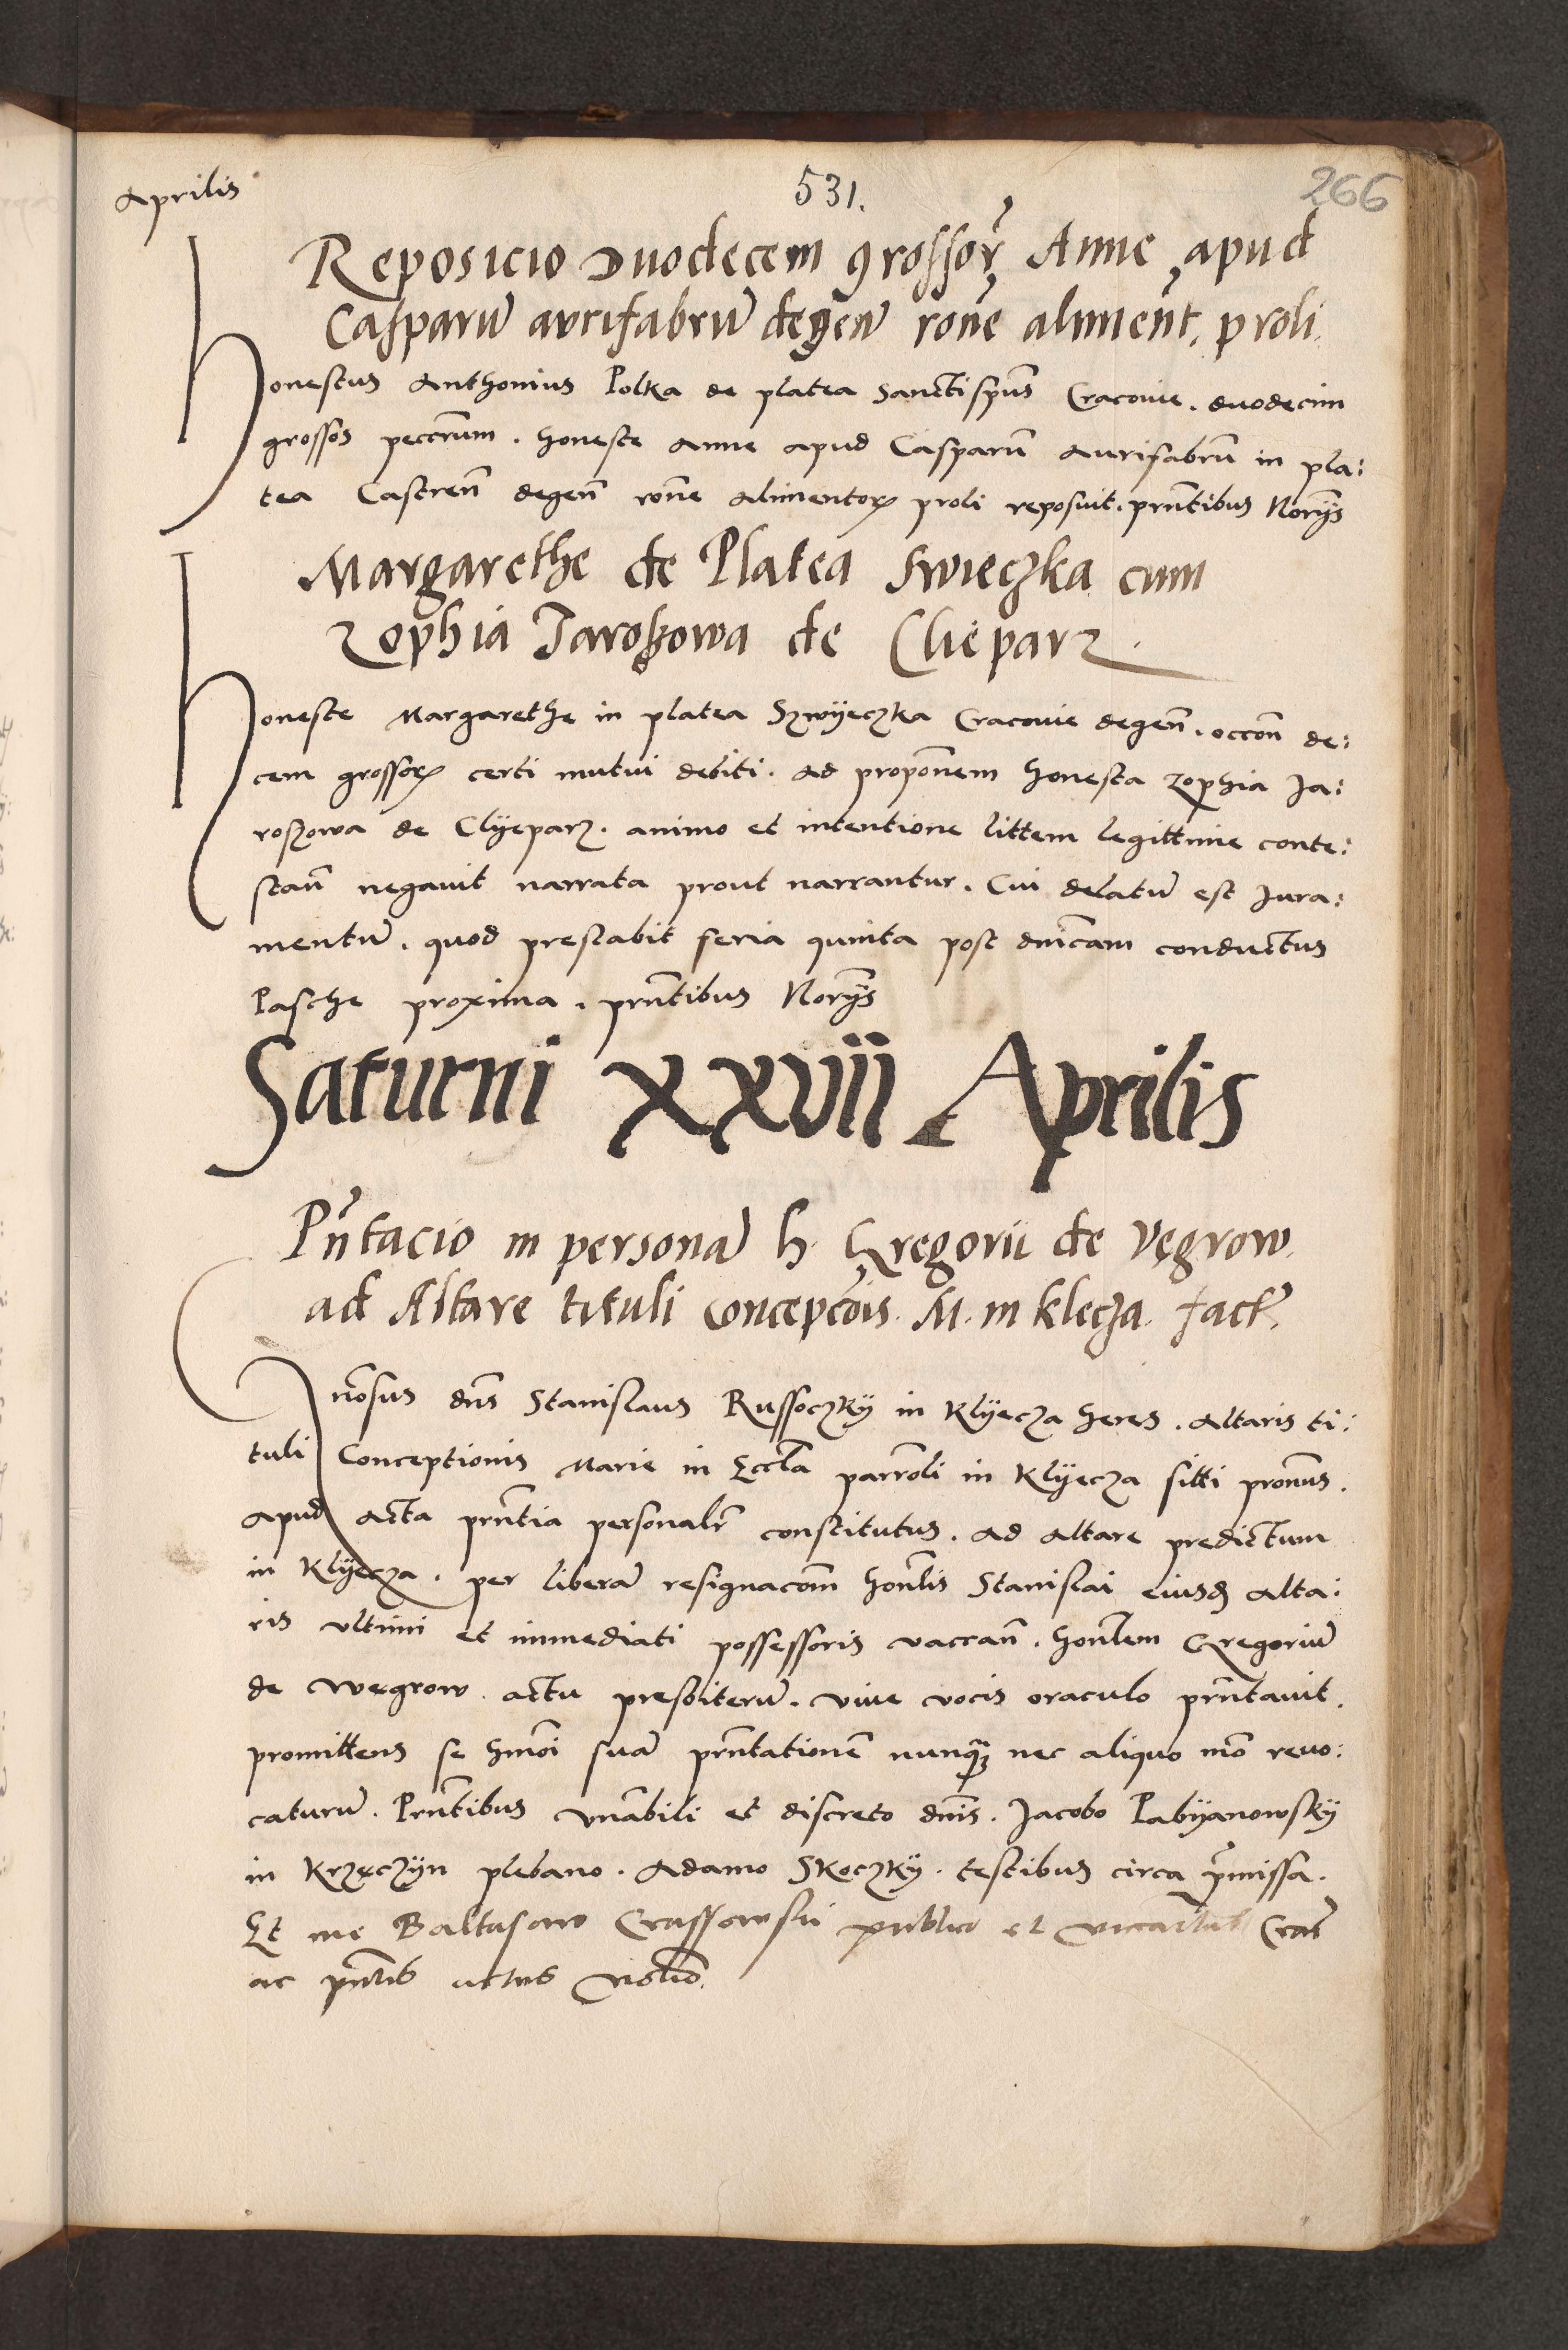 Aprilis
531.
266
Reposicio Duodecem grossoꝝ Anne apud
Casparũ aurifabrũ degeñ rone aliment. proli
Honestus Anthonius Polka de platea Sanctispũs Cracovie. duodecim
grossos peccrum. honeste Anne apud Casparũ Aurifabrũ in pla:
tea Castreñ degeñ rõne Alimentoꝝ proli reposuit. prñtibus Norijs
Margarethe de Platea Swieczka cum
Zophia Jaroszowa de Clieparz.
Honeste Margarethe in platea Szwÿeczka Cracovie degeñ. occõn de:
cem grossoꝝ certi mutui debiti. Ad proponem honesta Zophia Ja:
roszowa de Clÿeparz. animo et intentione littem legittime conte:
stañ negavit narrata prout narrantur. Cui delatũ est Jura:
mentũ. quod prestabit feria quinta post dnicam conductus
Pasche proxima. prñtibus Norijs
Saturni xxvii Aprilis
Pñtacio in personã h. Gregorii de Vęgrow
ad Altare tituli Concepcõis. M. in klecza. fact.
Gnõsus dñs Stanislaus Russoczkÿ in Klÿecza heres. Altaris ti:
tuli Conceptionis Marie in Eccla parrõli in Klÿecza sitti pronus.
apud acta prñtia personalr constitutus. Ad Altare predictum
in Klÿecza. per liberã resignacõm honlis Stanislai eiusdꝫ Alta:
ris ultimi et immediati possessoris vaccañ. honlem Gregoriũ
de Węgrow actu presbiterũ. vive vocis oraculo prñtavit.
promittens se hmõi suã prñtationẽ nunqꝫ nec aliquo mõ revo:
caturũ. Prñtibus vnãbili et discreto dnis. Jacobo Pabÿanowskÿ
in Krzęczÿn plebano. Adamo Skoczkÿ. testibus circa pmissa.
Et me Baltasaro Crassowski publico et Cras
ac pñtis actus notrio.